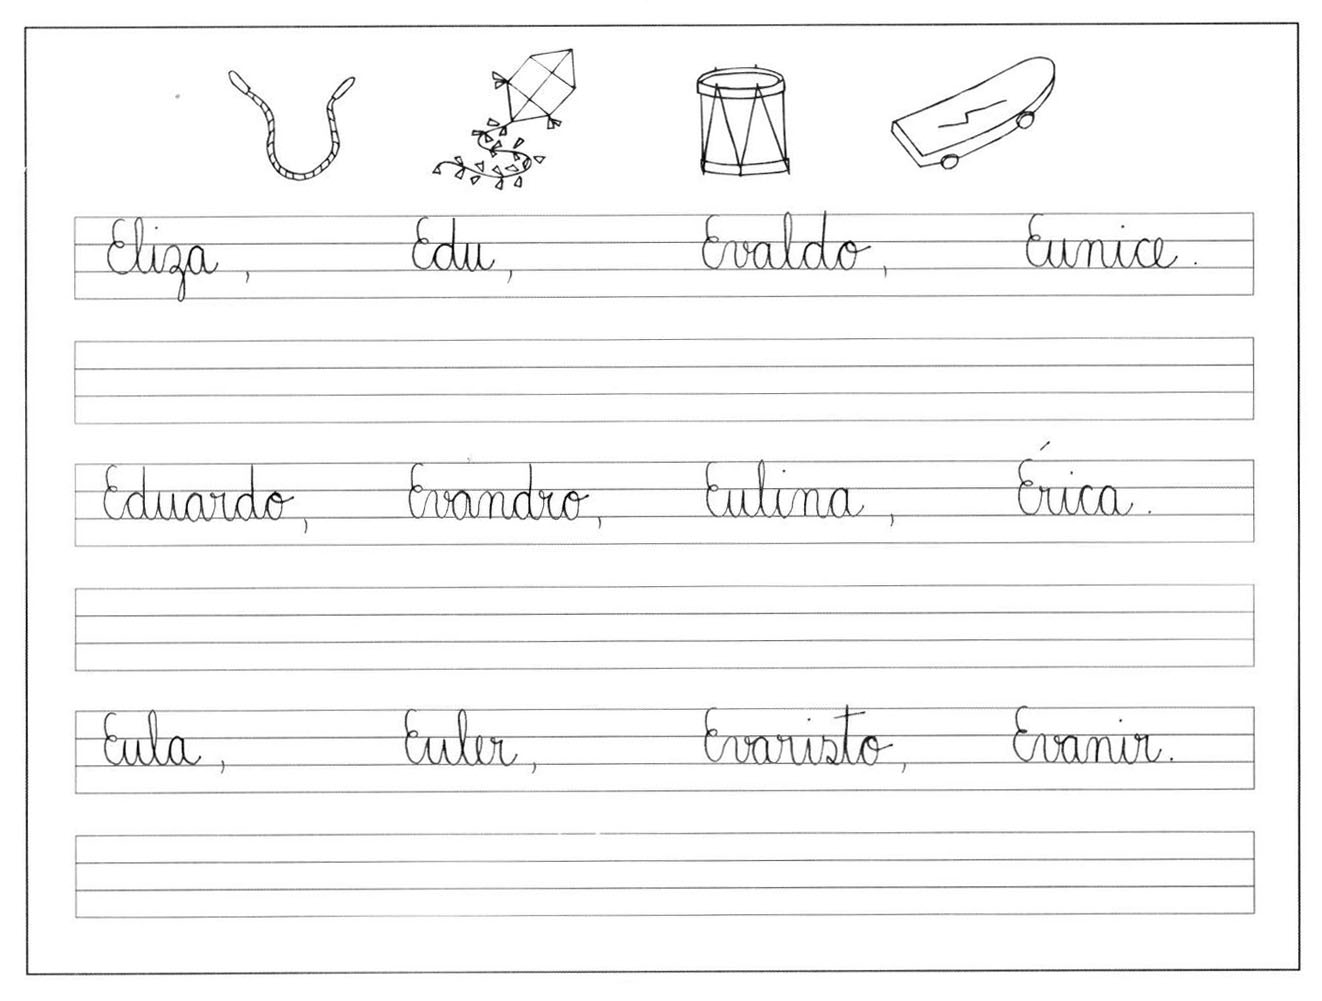 Eliza, Edu, Evaldo, Eunice.
Eduardo, Evandro, Eulina, Érica.
Eula, Euler, Evaristo, Evanir.